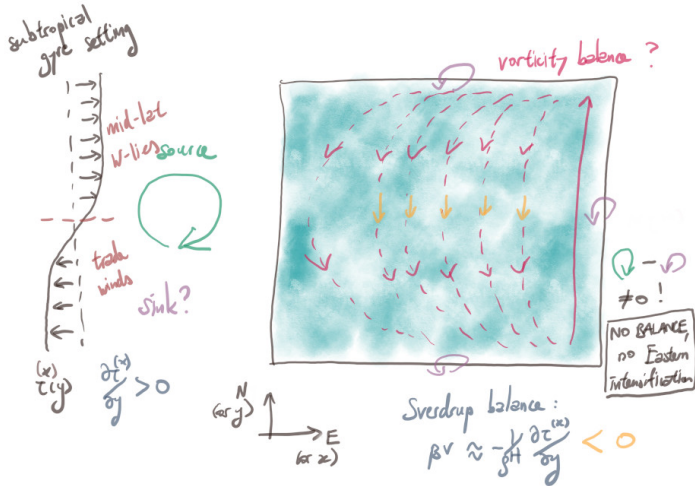 subtropical
gyre setting
mid-lat
W-lies
source
trade
winds
sink?
τ^(x)(y)
∂τ^(x)/∂y > 0
vorticity balance ?
≠0 !
NO BALANCE,
no Eastern
Intensification
N
(or y)
E
(or x)
Sverdrup balance :
βv ≈ -1/ρH ∂τ^(x)/∂y < 0